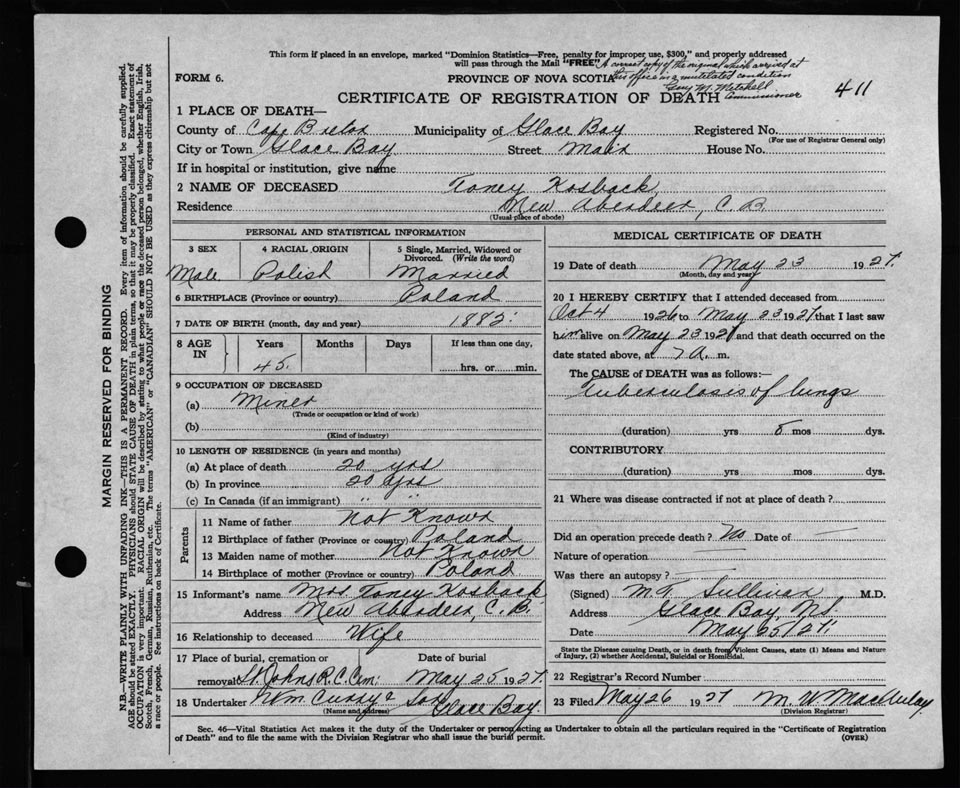 This form if placed in an envelope, marked "Dominion Statistics—Free, penalty for improper use, $300," and properly addressed
will pass through the Mail "FREE"
A correct copy of the original which arrived at
this office in a mutilated condition
Guy M. Mitchell
Commissioner
411
FORM 6.
PROVINCE OF NOVA SCOTIA
CERTIFICATE OF REGISTRATION OF DEATH
1 PLACE OF DEATH—
County of Cape Breton Municipality of Glace Bay Registered No.
(For use of Registrar General only)
City or Town Glace Bay Street Main House No.
If in hospital or institution, give name
2 NAME OF DECEASED Toney Kosback
Residence New Aberdeen, C. B.
(Usual place of abode)
PERSONAL AND STATISTICAL INFORMATION
3 SEX 4 RACIAL ORIGIN 5 Single, Married, Widowed or
Divorced. (Write the word)
Male Polish Married
6 BIRTHPLACE (Province or country) Poland
7 DATE OF BIRTH (month, day and year) 1882
8 AGE IN Years Months Days If less than one day,
45 hrs. or min.
9 OCCUPATION OF DECEASED
(a) Miner
(Trade or occupation or kind of work)
(b)
(Kind of industry)
10 LENGTH OF RESIDENCE (in years and months)
(a) At place of death 20 yrs
(b) In province 20 yrs
(c) In Canada (if an immigrant) " "
Parents
11 Name of father Not Known
12 Birthplace of father (Province or country) Poland
13 Maiden name of mother Not Known
14 Birthplace of mother (Province or country) Poland
15 Informant's name Mrs Toney Kosback
Address New Aberdeen, C. B.
16 Relationship to deceased Wife
17 Place of burial, cremation or Date of burial
removal St Johns R.C. Cem. May 25 1927.
18 Undertaker Wm. Curry & Son
(Name and address) Glace Bay.
MEDICAL CERTIFICATE OF DEATH
19 Date of death May 23 1927.
(Month, day and year)
20 I HEREBY CERTIFY that I attended deceased from
Oct 4 1926 to May 23 1927 that I last saw
him alive on May 23 1927 and that death occurred on the
date stated above, at 7 A. m.
The CAUSE of DEATH was as follows:—
Tuberculosis of lungs
(duration) yrs 8 mos dys.
CONTRIBUTORY
(duration) yrs mos dys.
21 Where was disease contracted if not at place of death?
Did an operation precede death? No Date of —
Nature of operation —
Was there an autopsy? —
(Signed) Sullivan M.D.
Address Glace Bay, N.S.
Date May 25/27.
State the Disease causing Death, or in death from Violent Causes, state (1) Means and Nature
of Injury, (2) whether Accidental, Suicidal or Homicidal.
22 Registrar's Record Number
23 Filed May 26 1927 M. W. MacAulay
(Division Registrar)
Sec. 46—Vital Statistics Act makes it the duty of the Undertaker or person acting as Undertaker to obtain all the particulars required in the "Certificate of Registration
of Death" and to file the same with the Division Registrar who shall issue the burial permit. (OVER)
MARGIN RESERVED FOR BINDING
N.B.—WRITE PLAINLY WITH UNFADING INK—THIS IS A PERMANENT RECORD. Every item of information should be carefully supplied.
AGE should be stated EXACTLY. PHYSICIANS should STATE CAUSE OF DEATH in plain terms, so that it may be properly classified. Exact statement of
OCCUPATION is very important. RACIAL ORIGIN will be described by stating to what people or race the deceased person belonged, whether English, Irish,
Scotch, French, German, Russian, Ruthenian, etc. The terms "AMERICAN" or "CANADIAN" SHOULD NOT BE USED as they express citizenship but not
a race or people. See instructions on back of Certificate.